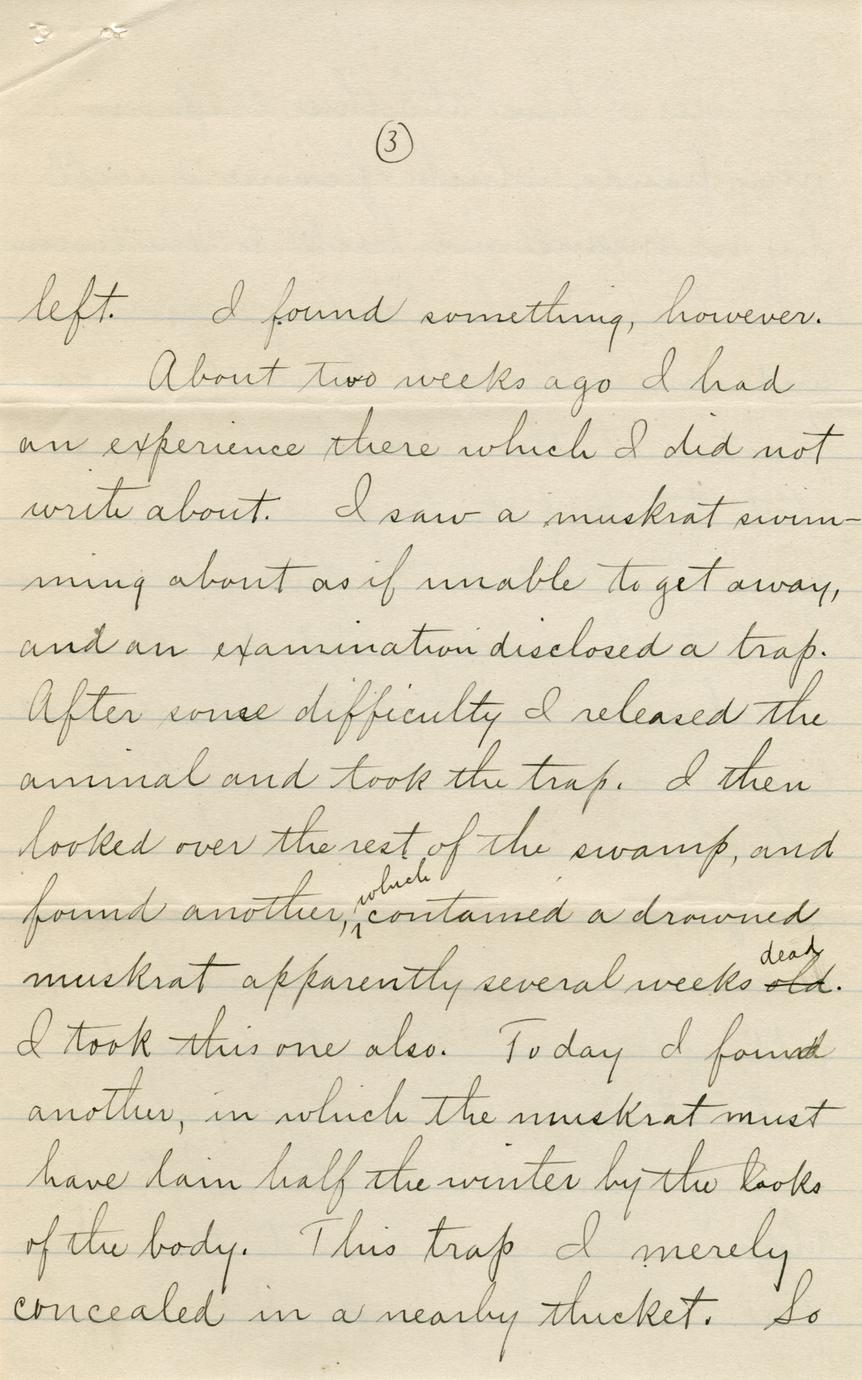 3
left. I found something, however.
About two weeks ago I had
an experience there which I did not
write about. I saw a muskrat swim-
ming about as if unable to get away,
and an examination disclosed a trap.
After some difficulty I released the
animal and took the trap. I then
looked over the rest of the swamp, and
found another, which contained a drowned
muskrat apparently several weeks old dead.
I took this one also. Today I found
another, in which the muskrat must
have lain half the winter by the looks
of the body. This trap I merely
concealed in a nearby thicket. So